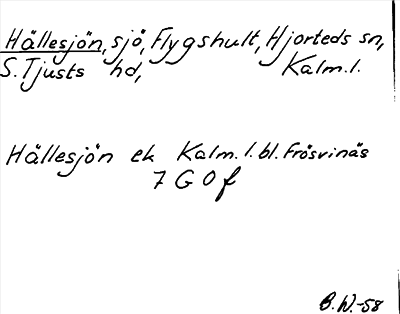 Hällesjön, sjö, Flygshult, Hjorteds sn,
S. Tjusts hd, Kalm. l.
Hällesjön ek Kalm. l. bl. Frösvinäs
7 G 0 f
B.W.-58